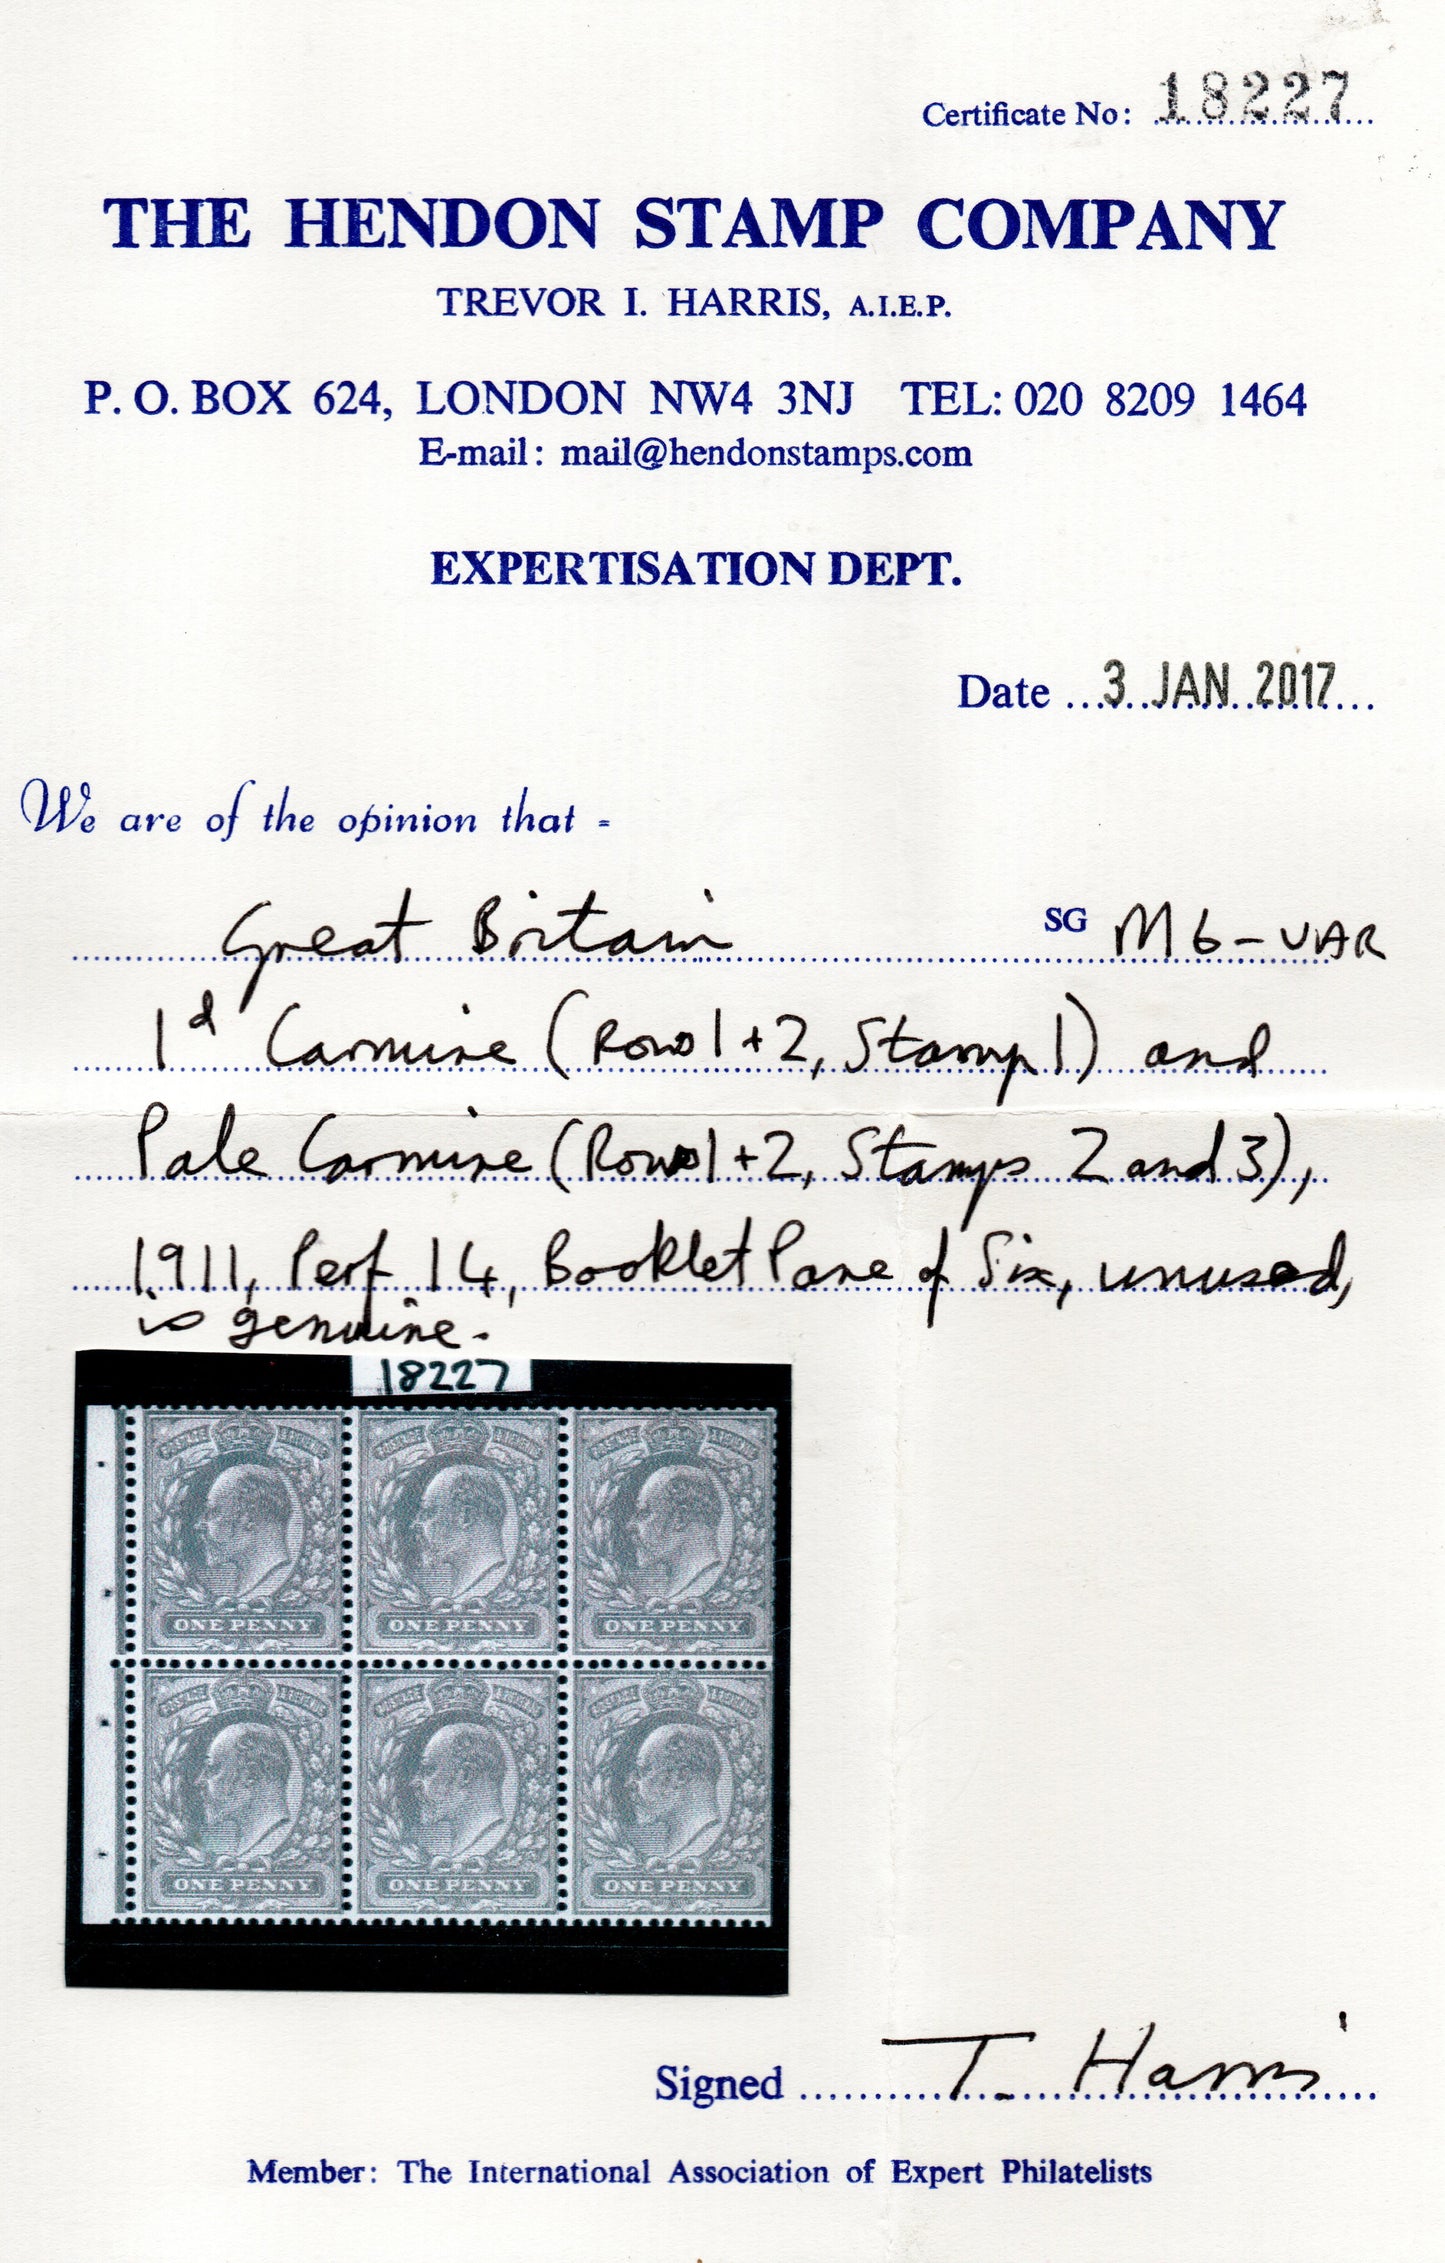 Certificate No: 18227
THE HENDON STAMP COMPANY
TREVOR I. HARRIS, A.I.E.P.
P. O. BOX 624, LONDON NW4 3NJ TEL: 020 8209 1464
E-mail: mail@hendonstamps.com
EXPERTISATION DEPT.
Date 3 JAN 2017
We are of the opinion that =
Great Britain SG M6-VAR
1d Carmine (Row 1+2, Stamp 1) and
Pale Carmine (Row 1+2, Stamps 2 and 3),
1911, Perf 14, Booklet Pane of Six, unused,
is genuine.
18227
POSTAGE & REVENUE POSTAGE & REVENUE POSTAGE & REVENUE
ONE PENNY ONE PENNY ONE PENNY
POSTAGE & REVENUE POSTAGE & REVENUE POSTAGE & REVENUE
ONE PENNY ONE PENNY ONE PENNY
Signed T. Harris
Member: The International Association of Expert Philatelists